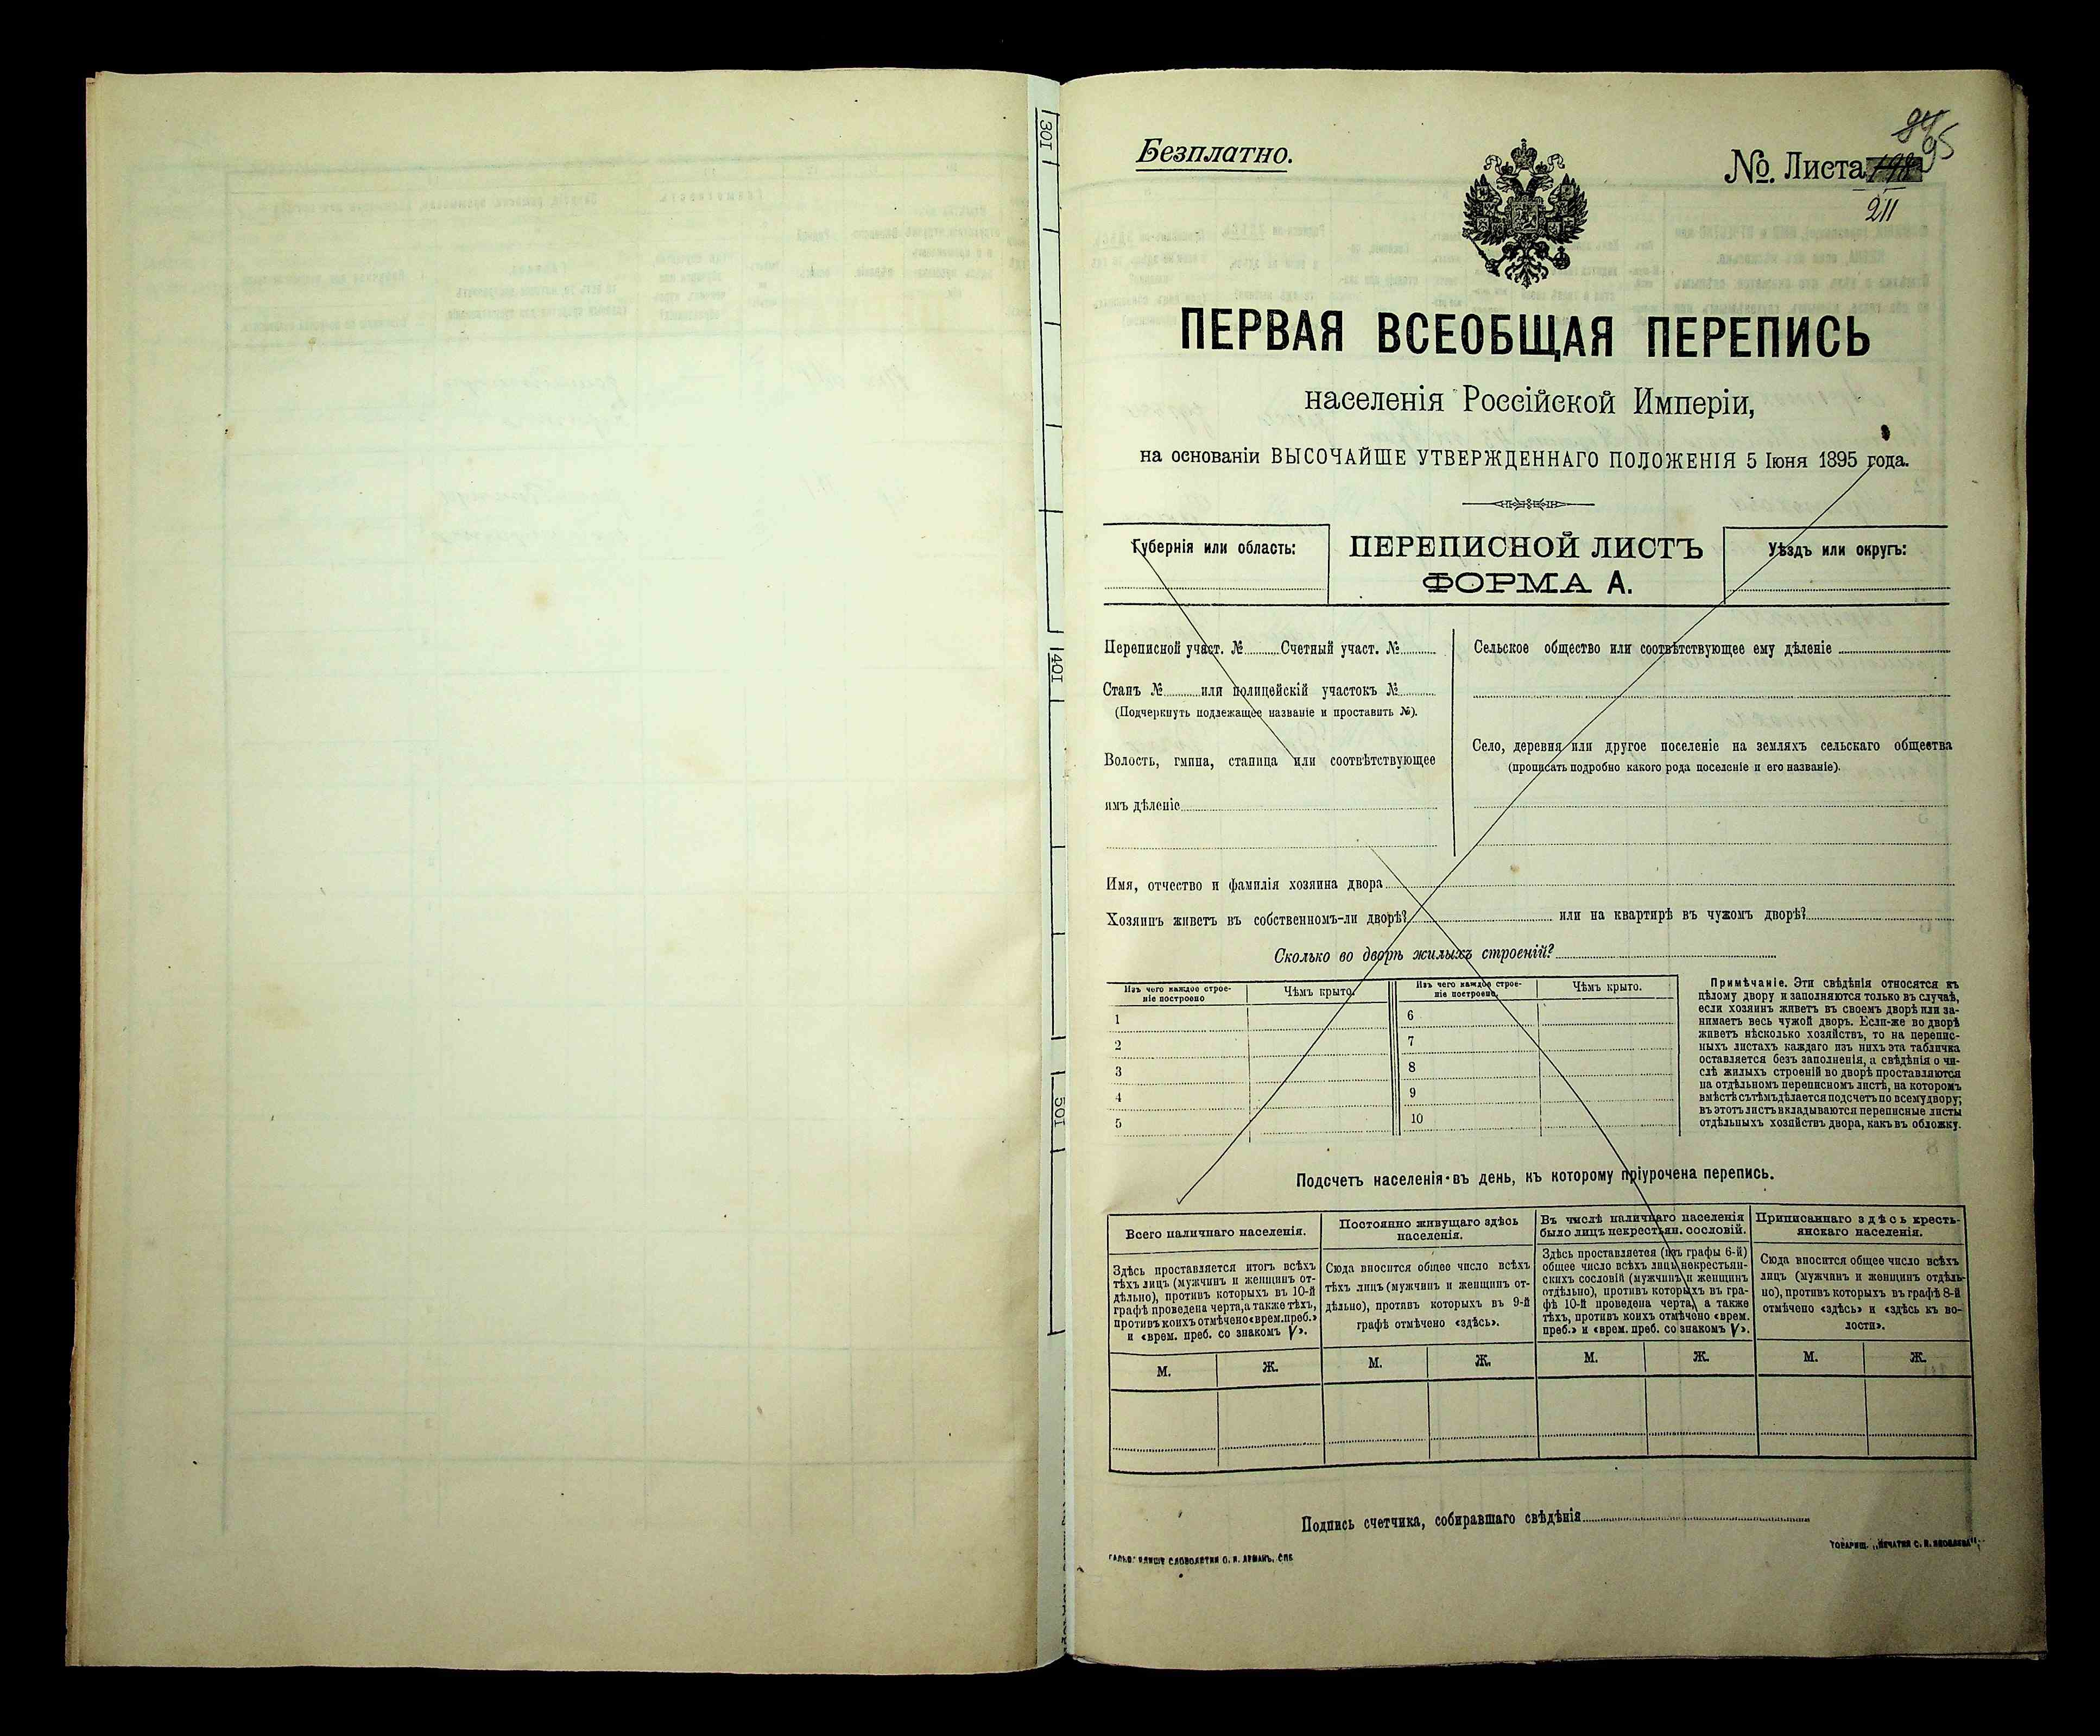 Безплатно.
95
№. Листа
211
ПЕРВАЯ ВСЕОБЩАЯ ПЕРЕПИСЬ
населенія Россійской Имперіи,
на основаніи ВЫСОЧАЙШЕ УТВЕРЖДЕННАГО ПОЛОЖЕНІЯ 5 Іюня 1895 года.
Губернія или область:
ПЕРЕПИСНОЙ ЛИСТЪ
ФОРМА А.
Уѣздъ или округъ:
Переписной участ. № Счетный участ. №
Станъ № или полицейскій участокъ №
(Подчеркнуть подлежащее названіе и проставить №).
Волость, гмина, станица или соотвѣтствующее
имъ дѣленіе
Сельское общество или соотвѣтствующее ему дѣленіе
Село, деревня или другое поселеніе на земляхъ сельскаго общества
(прописать подробно какого рода поселеніе и его названіе).
Имя, отчество и фамилія хозяина двора
Хозяинъ живетъ въ собственномъ-ли дворѣ? или на квартирѣ въ чужомъ дворѣ?
Сколько во дворѣ жилыхъ строеній?
Изъ чего каждое строе-
ніе построено
Чѣмъ крыто.
Изъ чего каждое строе-
ніе построено.
Чѣмъ крыто.
1
2
3
4
5
6
7
8
9
10
Примѣчаніе. Эти свѣдѣнія относятся къ
цѣлому двору и заполняются только въ случаѣ,
если хозяинъ живетъ въ своемъ дворѣ или за-
нимаетъ весь чужой дворъ. Если-же во дворѣ
живетъ нѣсколько хозяйствъ, то на перепис-
ныхъ листахъ каждаго изъ нихъ эта табличка
оставляется безъ заполненія, а свѣдѣнія о чи-
слѣ жилыхъ строеній во дворѣ проставляются
на отдѣльномъ переписномъ листѣ, на которомъ
вмѣстѣ съ тѣмъ дѣлается подсчетъ по всему двору;
въ этотъ листъ вкладываются переписные листы
отдѣльныхъ хозяйствъ двора, какъ въ обложку.
Подсчетъ населенія въ день, къ которому пріурочена перепись.
Всего наличнаго населенія.
Здѣсь проставляется итогъ всѣхъ
тѣхъ лицъ (мужчинъ и женщинъ от-
дѣльно), противъ которыхъ въ 10-й
графѣ проведена черта, а также тѣхъ,
противъ коихъ отмѣчено «врем. преб.»
и «врем. преб. со знакомъ V».
Постоянно живущаго здѣсь
населенія.
Сюда вносится общее число всѣхъ
тѣхъ лицъ (мужчинъ и женщинъ от-
дѣльно), противъ которыхъ въ 9-й
графѣ отмѣчено «здѣсь».
Въ числѣ наличнаго населенія
было лицъ некрестьян. сословій.
Здѣсь проставляется (изъ графы 6-й)
общее число всѣхъ лицъ некрестьян-
скихъ сословій (мужчинъ и женщинъ
отдѣльно), противъ которыхъ въ гра-
фѣ 10-й проведена черта, а также
тѣхъ, противъ коихъ отмѣчено «врем.
преб.» и «врем. преб. со знакомъ V».
Приписаннаго здѣсь кресть-
янскаго населенія.
Сюда вносится общее число всѣхъ
лицъ (мужчинъ и женщинъ отдѣль-
но), противъ которыхъ въ графѣ 8-й
отмѣчено «здѣсь» и «здѣсь къ во-
лости».
М. Ж. М. Ж. М. Ж. М. Ж.
Подпись счетчика, собиравшаго свѣдѣнія
301
401
501